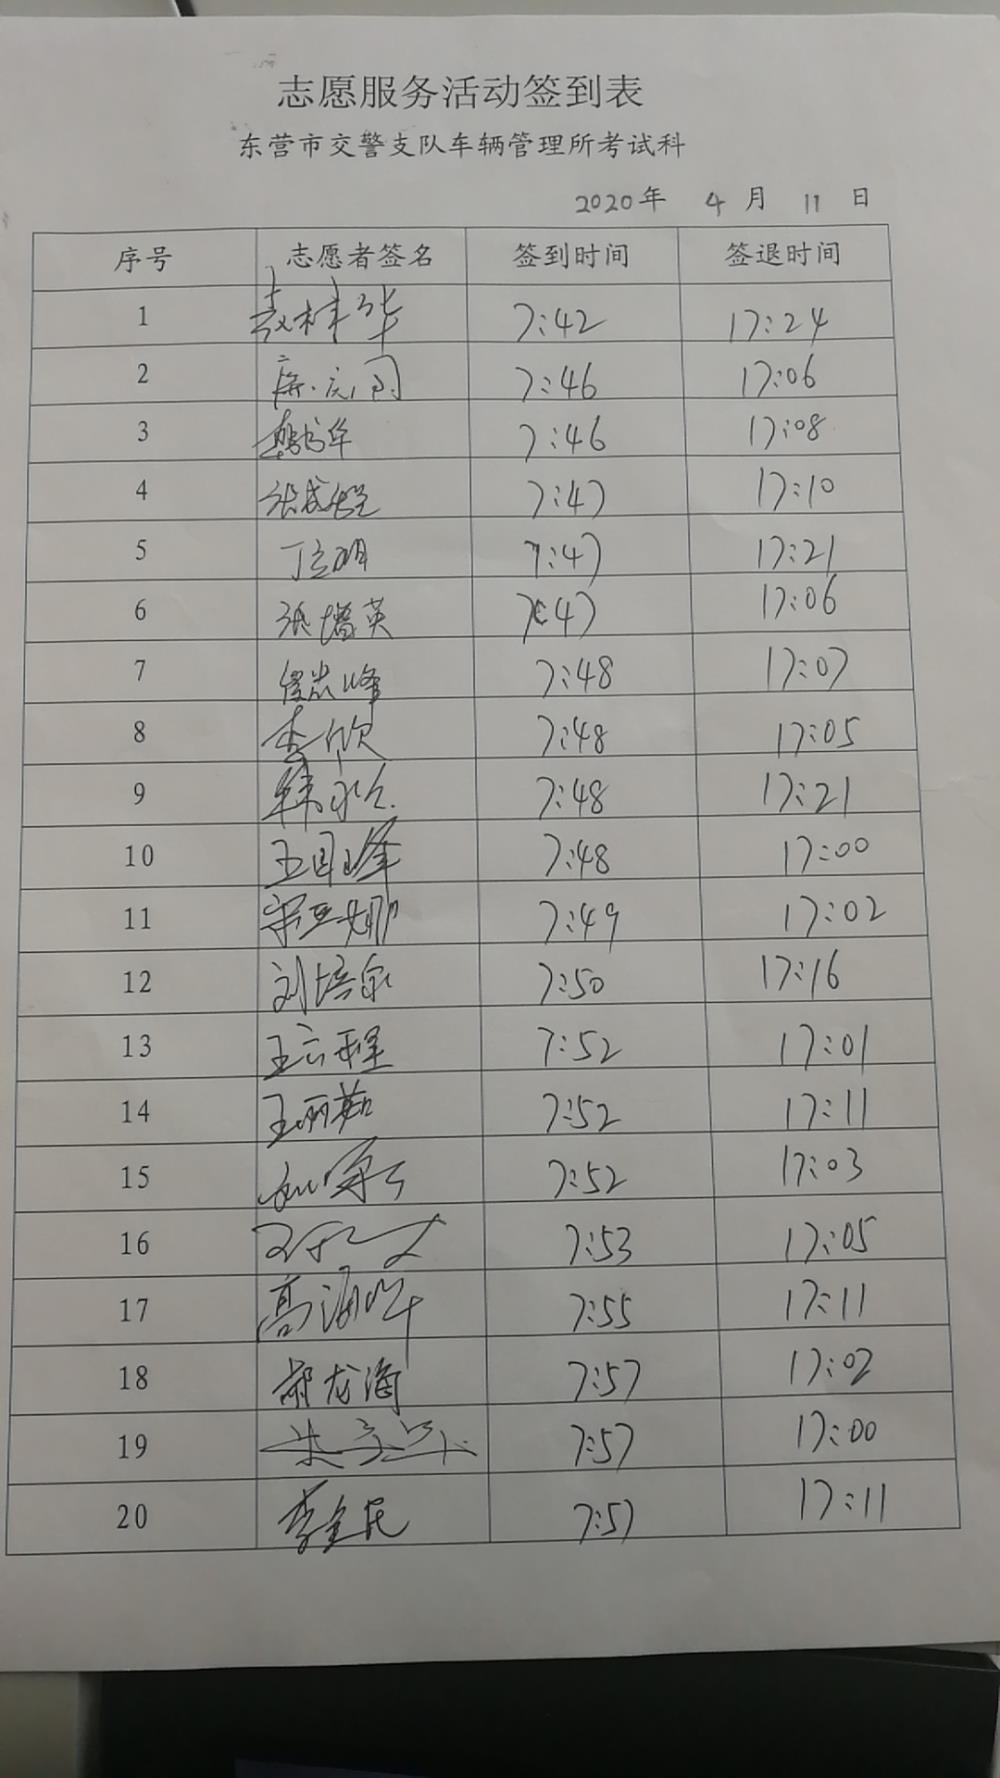 志愿服务活动签到表
东营市交警支队车辆管理所考试科
2020年 4 月 11 日
序号 志愿者签名 签到时间 签退时间
1 7:42 17:24
2 7:46 17:06
3 7:46 17:08
4 7:47 17:10
5 丁立明 7:47 17:21
6 张增英 7:47 17:06
7 7:48 17:07
8 李欣 7:48 17:05
9 7:48 17:21
10 王国峰 7:48 17:00
11 宋亚娜 7:49 17:02
12 刘培泉 7:50 17:16
13 王云程 7:52 17:01
14 王丽茹 7:52 17:11
15 7:52 17:03
16 7:53 17:05
17 高海峰 7:55 17:11
18 郝龙海 7:57 17:02
19 7:57 17:00
20 李金民 7:57 17:11